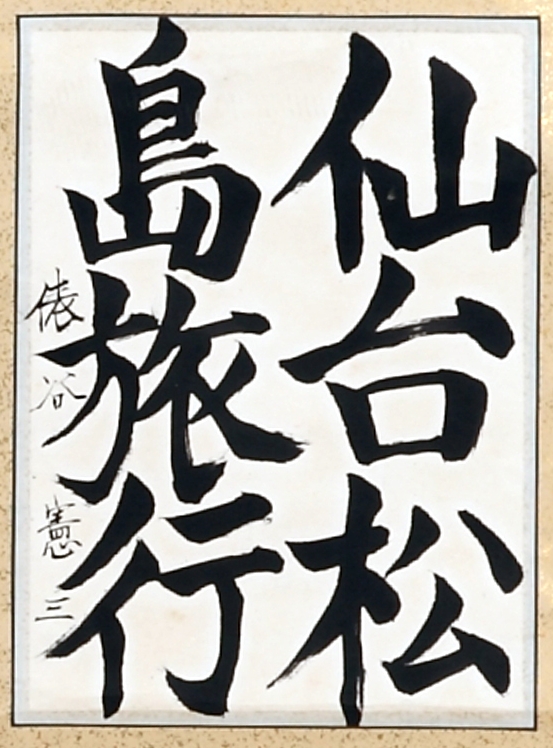 仙台松
島旅行
俵谷憲三